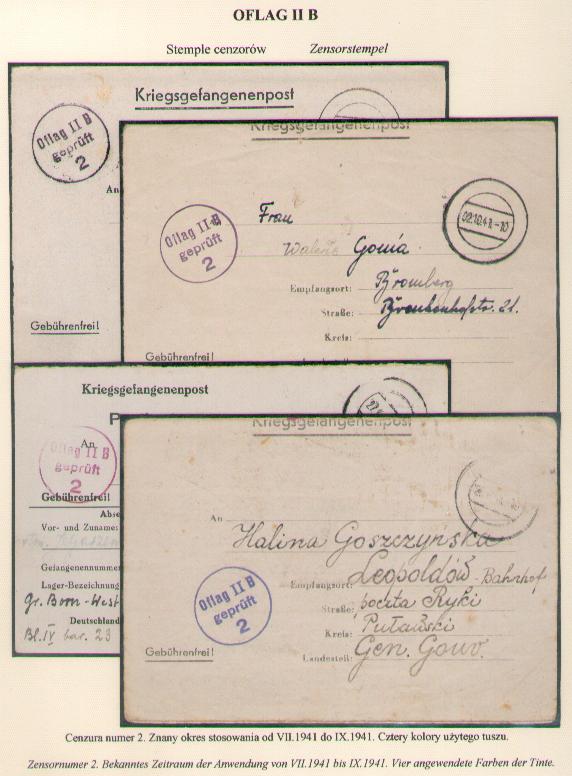 OFLAG II B
Stemple cenzorów Zensorstempel
Kriegsgefangenenpost
Oflag II B
geprüft
2
An
Gebührenfrei!
Kriegsgefangenenpost
02.10.41.-10
Oflag II B
geprüft
2
Frau
Gonia
Empfangsort: Bromberg
Straße: 21.
Kreis:
Gebührenfrei!
Kriegsgefangenenpost
An
Oflag II B
geprüft
2
Gebührenfrei!
Abse
Vor- und Zuname:
Gefangenennummer
Lager-Bezeichnung
Gr. Born-West
Deutschland
Bl. IV bar. 23
Kriegsgefangenenpost
An
Halina Goszczyńska
Oflag II B
geprüft
2
Empfangsort: Leopoldów - Bahnhof
Straße: poczta Ryki
Kreis: Puławski
Landesteil: Gen. Gouv.
Gebührenfrei!
Cenzura numer 2. Znany okres stosowania od VII.1941 do IX.1941. Cztery kolory użytego tuszu.
Zensornumer 2. Bekanntes Zeitraum der Anwendung von VII.1941 bis IX.1941. Vier angewendete Farben der Tinte.